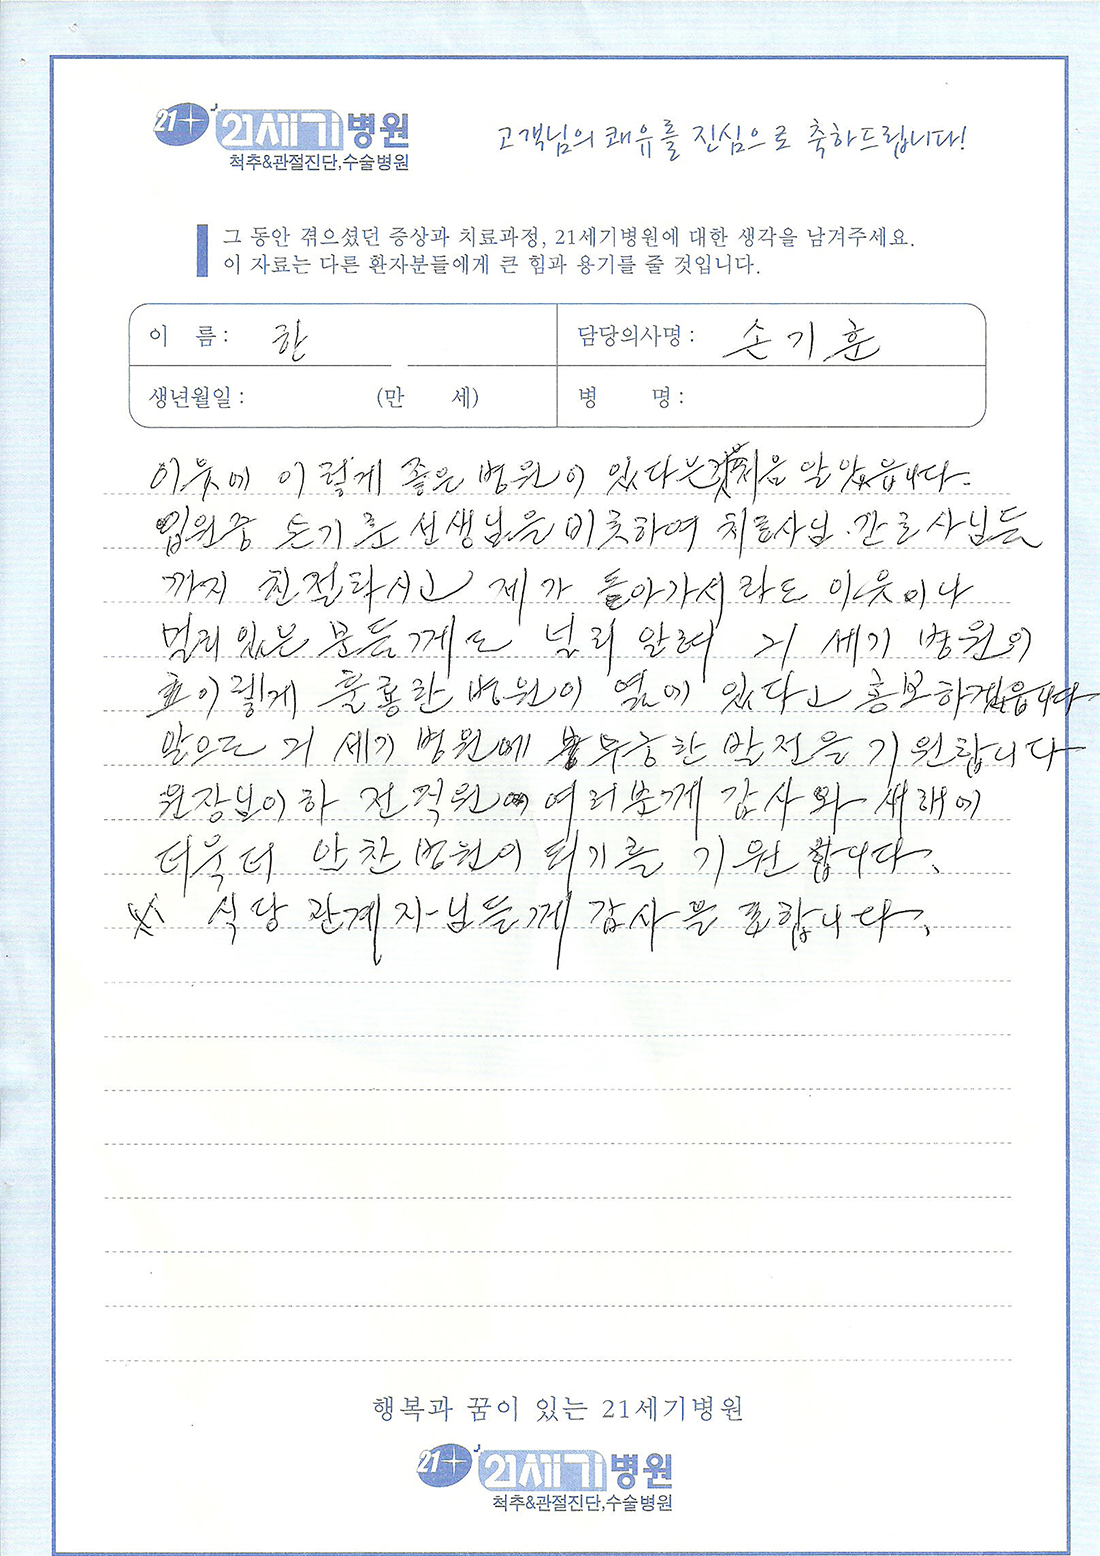 21+ 21세기병원
척추&관절진단,수술병원
고객님의 쾌유를 진심으로 축하드립니다!
그 동안 겪으셨던 증상과 치료과정, 21세기병원에 대한 생각을 남겨주세요.
이 자료는 다른 환자분들에게 큰 힘과 용기를 줄 것입니다.
이 름 : 한 담당의사명 : 손기훈
생년월일 : (만 세) 병 명 :
이웃에 이렇게 좋은 병원이 있다는것처음 알았읍니다.
입원중 손기훈 선생님을 비롯하여 치료사님. 간호사님들
까지 친절하시고 제가 돌아가서라도 이웃이나
멀리있는 분들께도 널리 알려 21 세기 병원의
이렇게 훌륭한 병원이 옆에 있다고 홍보하겠읍니다
앞으로 21 세기 병원에 무궁한 발전을 기원합니다
원장님이하 전직원 여러분께 감사와 새해에
더욱더 알찬 병원이 되기를 기원 합니다.
식당 관계자님들께 감사를 표합니다.
행복과 꿈이 있는 21세기병원
21+ 21세기병원
척추&관절진단,수술병원